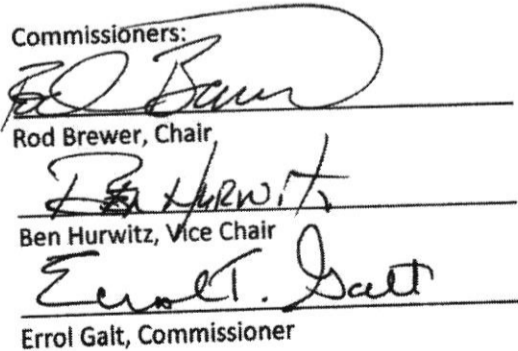 Commissioners:
Rod Brewer, Chair
Ben Hurwitz
Ben Hurwitz, Vice Chair
Errol T. Galt
Errol Galt, Commissioner